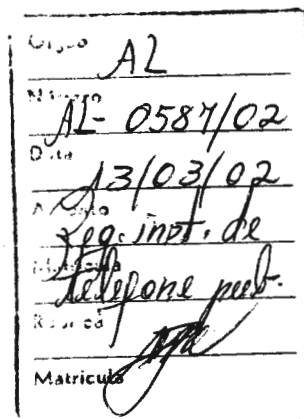 Órgão
AL
Número
AL- 0587/02
Data
13/03/02
Assunto
Req. inst. de
telefone pub.
Rubrica
Matrícula